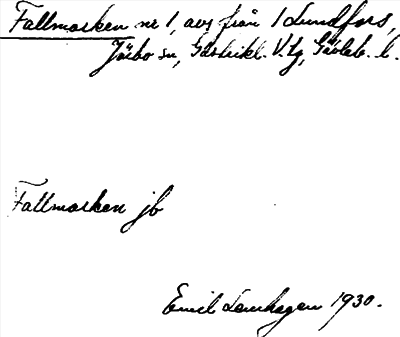 Fallmarken nr 1, avs från 1 Lundfors,
Järbo sn, Gästrikl. V. tg, Gävleb. l.
Fallmarken jb
Emil Lenhagen 1930.